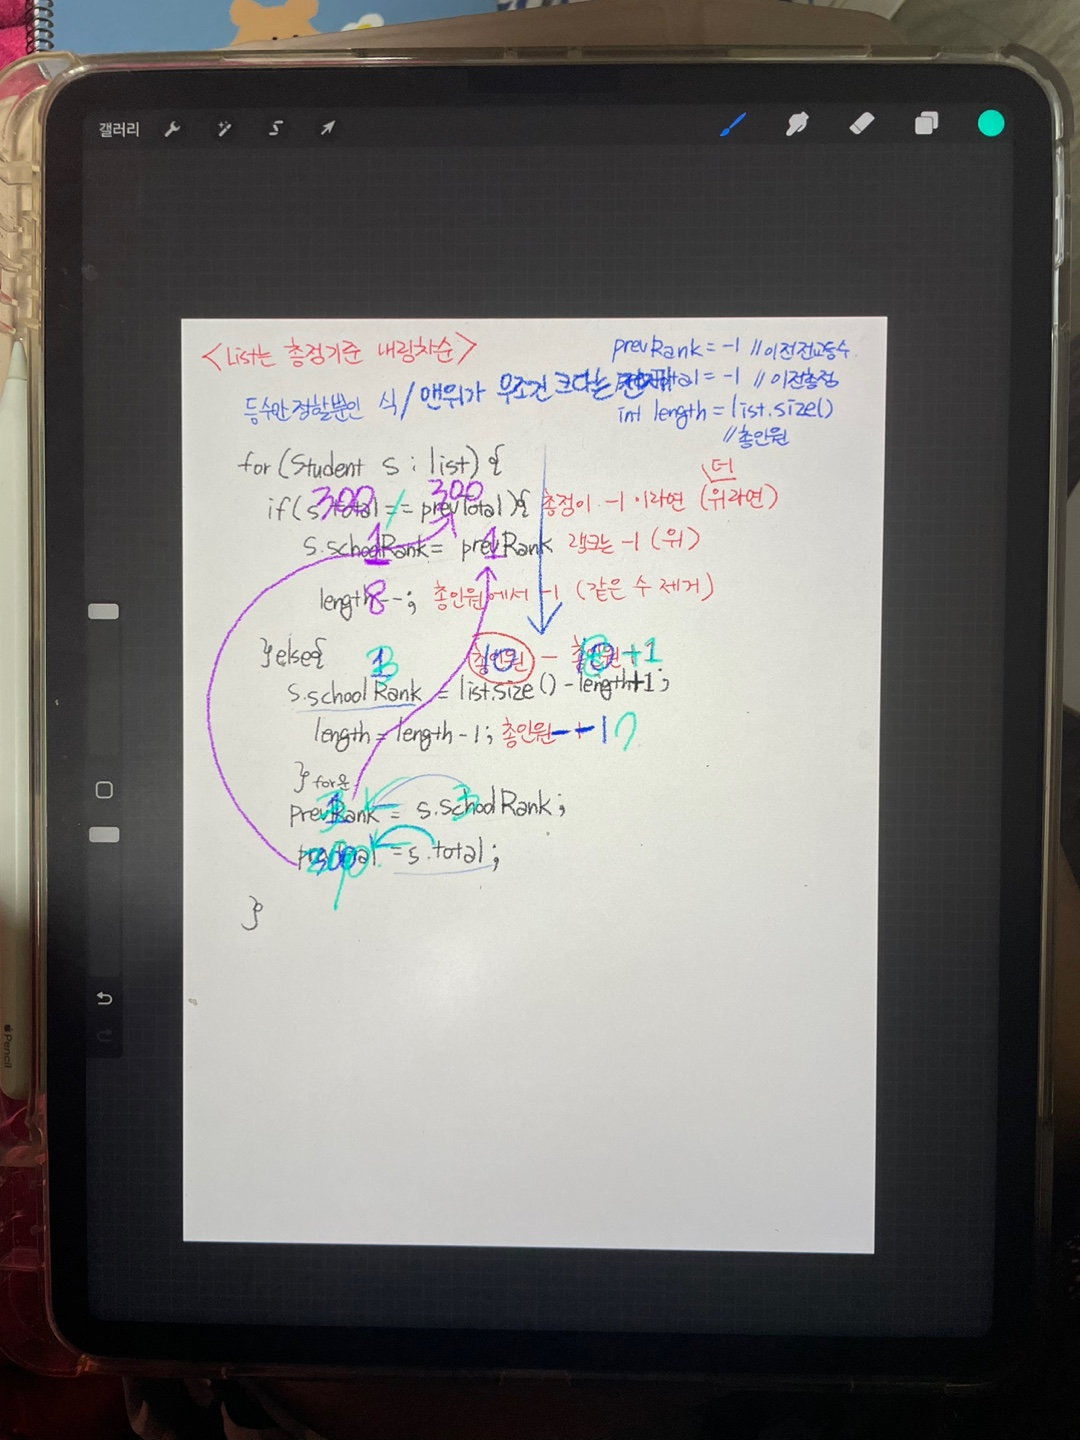 갤러리
<List는 총점기준 내림차순>
prevRank = -1 //이전전교등수
등수만 정할뿐인 식/맨위가 무조건 크다는 전제하
tal = -1 //이전총점
int length = list.size()
//총인원
for(Student s : list) {
더
300 300
if(s.total == prevTotal){ 총점이 -1 이라면 (위라면)
s.schoolRank = prevRank 랭크는 -1 (위)
1 1
length--; 총인원에서 -1 (같은 수 제거)
8
}else{ 총인원 - 총인원 +1
10
s.schoolRank = list.size() - length+1;
length = length - 1; 총인원 - 1 7
} for문
prevRank = s.schoolRank;
prevTotal = s.total;
}
Pencil